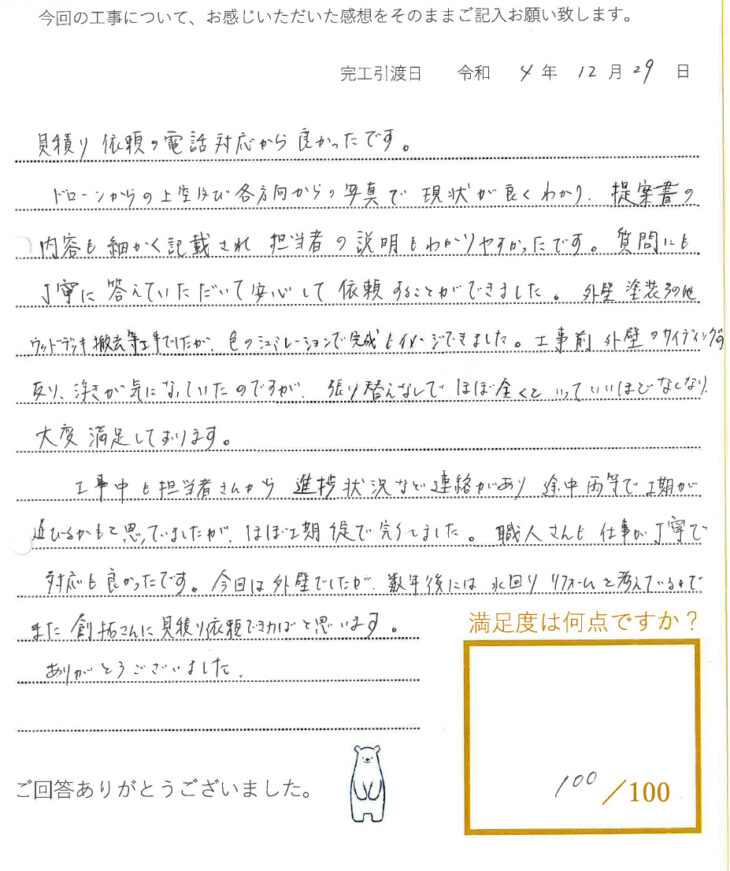 今回の工事について、お感じいただいた感想をそのままご記入お願い致します。
完工引渡日 令和 4 年 12 月 29 日
見積り依頼の電話対応から良かったです。
ドローンからの上空及び各方向からの写真で現状が良くわかり、提案書の
内容も細かく記載され担当者の説明もわかりやすかったです。質問にも
丁寧に答えていただいて安心して依頼することができました。外壁塗装その他
ウッドデッキ撤去等工事でしたが、色のシュミレーションで完成もイメージできました。工事前外壁のサイディングの
反り、浮きが気になっていたのですが、張り替えなしでほぼ全くといっていいほどなくなり、
大変満足しております。
工事中も担当者さんから進捗状況など連絡があり途中雨等で工期が
延びるかもと思っていましたが、ほぼ工期通りで完了しました。職人さんも仕事が丁寧で
対応も良かったです。今回は外壁でしたが、数年後には水回りリフォームを考えているので
また創拓さんに見積り依頼できればと思います。
ありがとうございました。
満足度は何点ですか？
100/100
ご回答ありがとうございました。